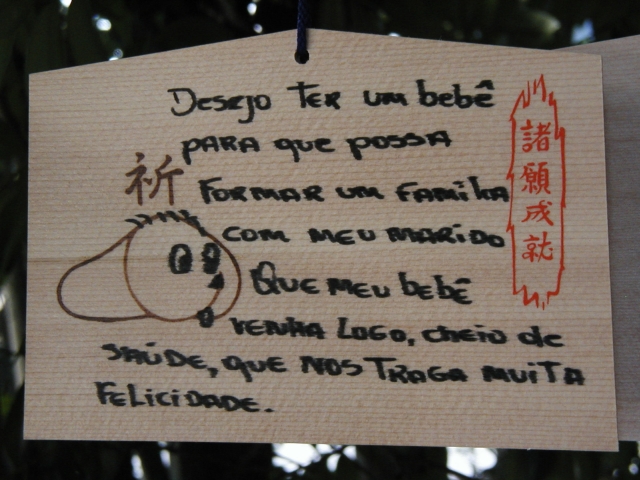 Desejo ter um bebê
para que possa
formar um família
com meu marido
Que meu bebê
venha logo, cheio de
saúde, que nos traga muita
felicidade.
祈
諸願成就